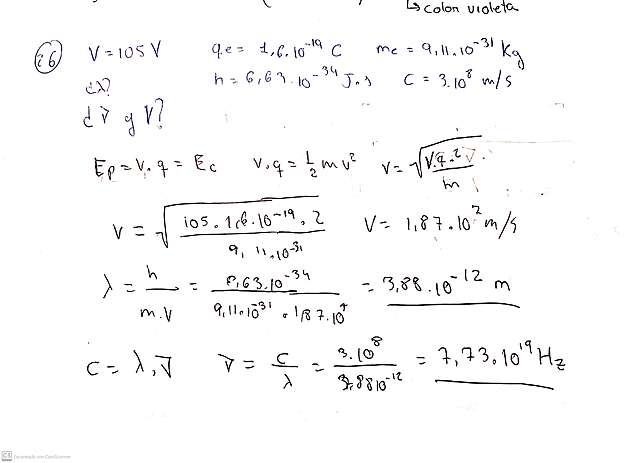 ↳ colon violeta
26 V = 105 V qe = 1,6.10⁻¹⁹ C me = 9,11.10⁻³¹ Kg
¿λ? h = 6,63.10⁻³⁴ J.s C = 3.10⁸ m/s
¿ν y V?
Ep = V.q = Ec V.q = 1/2 m v² V = √(V.q.2/m)
V = √(105.1,6.10⁻¹⁹.2 / 9,11.10⁻³¹) V = 1,87.10⁷ m/s
λ = h/m.V = 6,63.10⁻³⁴ / 9,11.10⁻³¹.1,87.10⁷ = 3,88.10⁻¹² m
C = λ.ν ν = C/λ = 3.10⁸ / 3,88 10⁻¹² = 7,73.10¹⁹ Hz
CS Escaneado con CamScanner